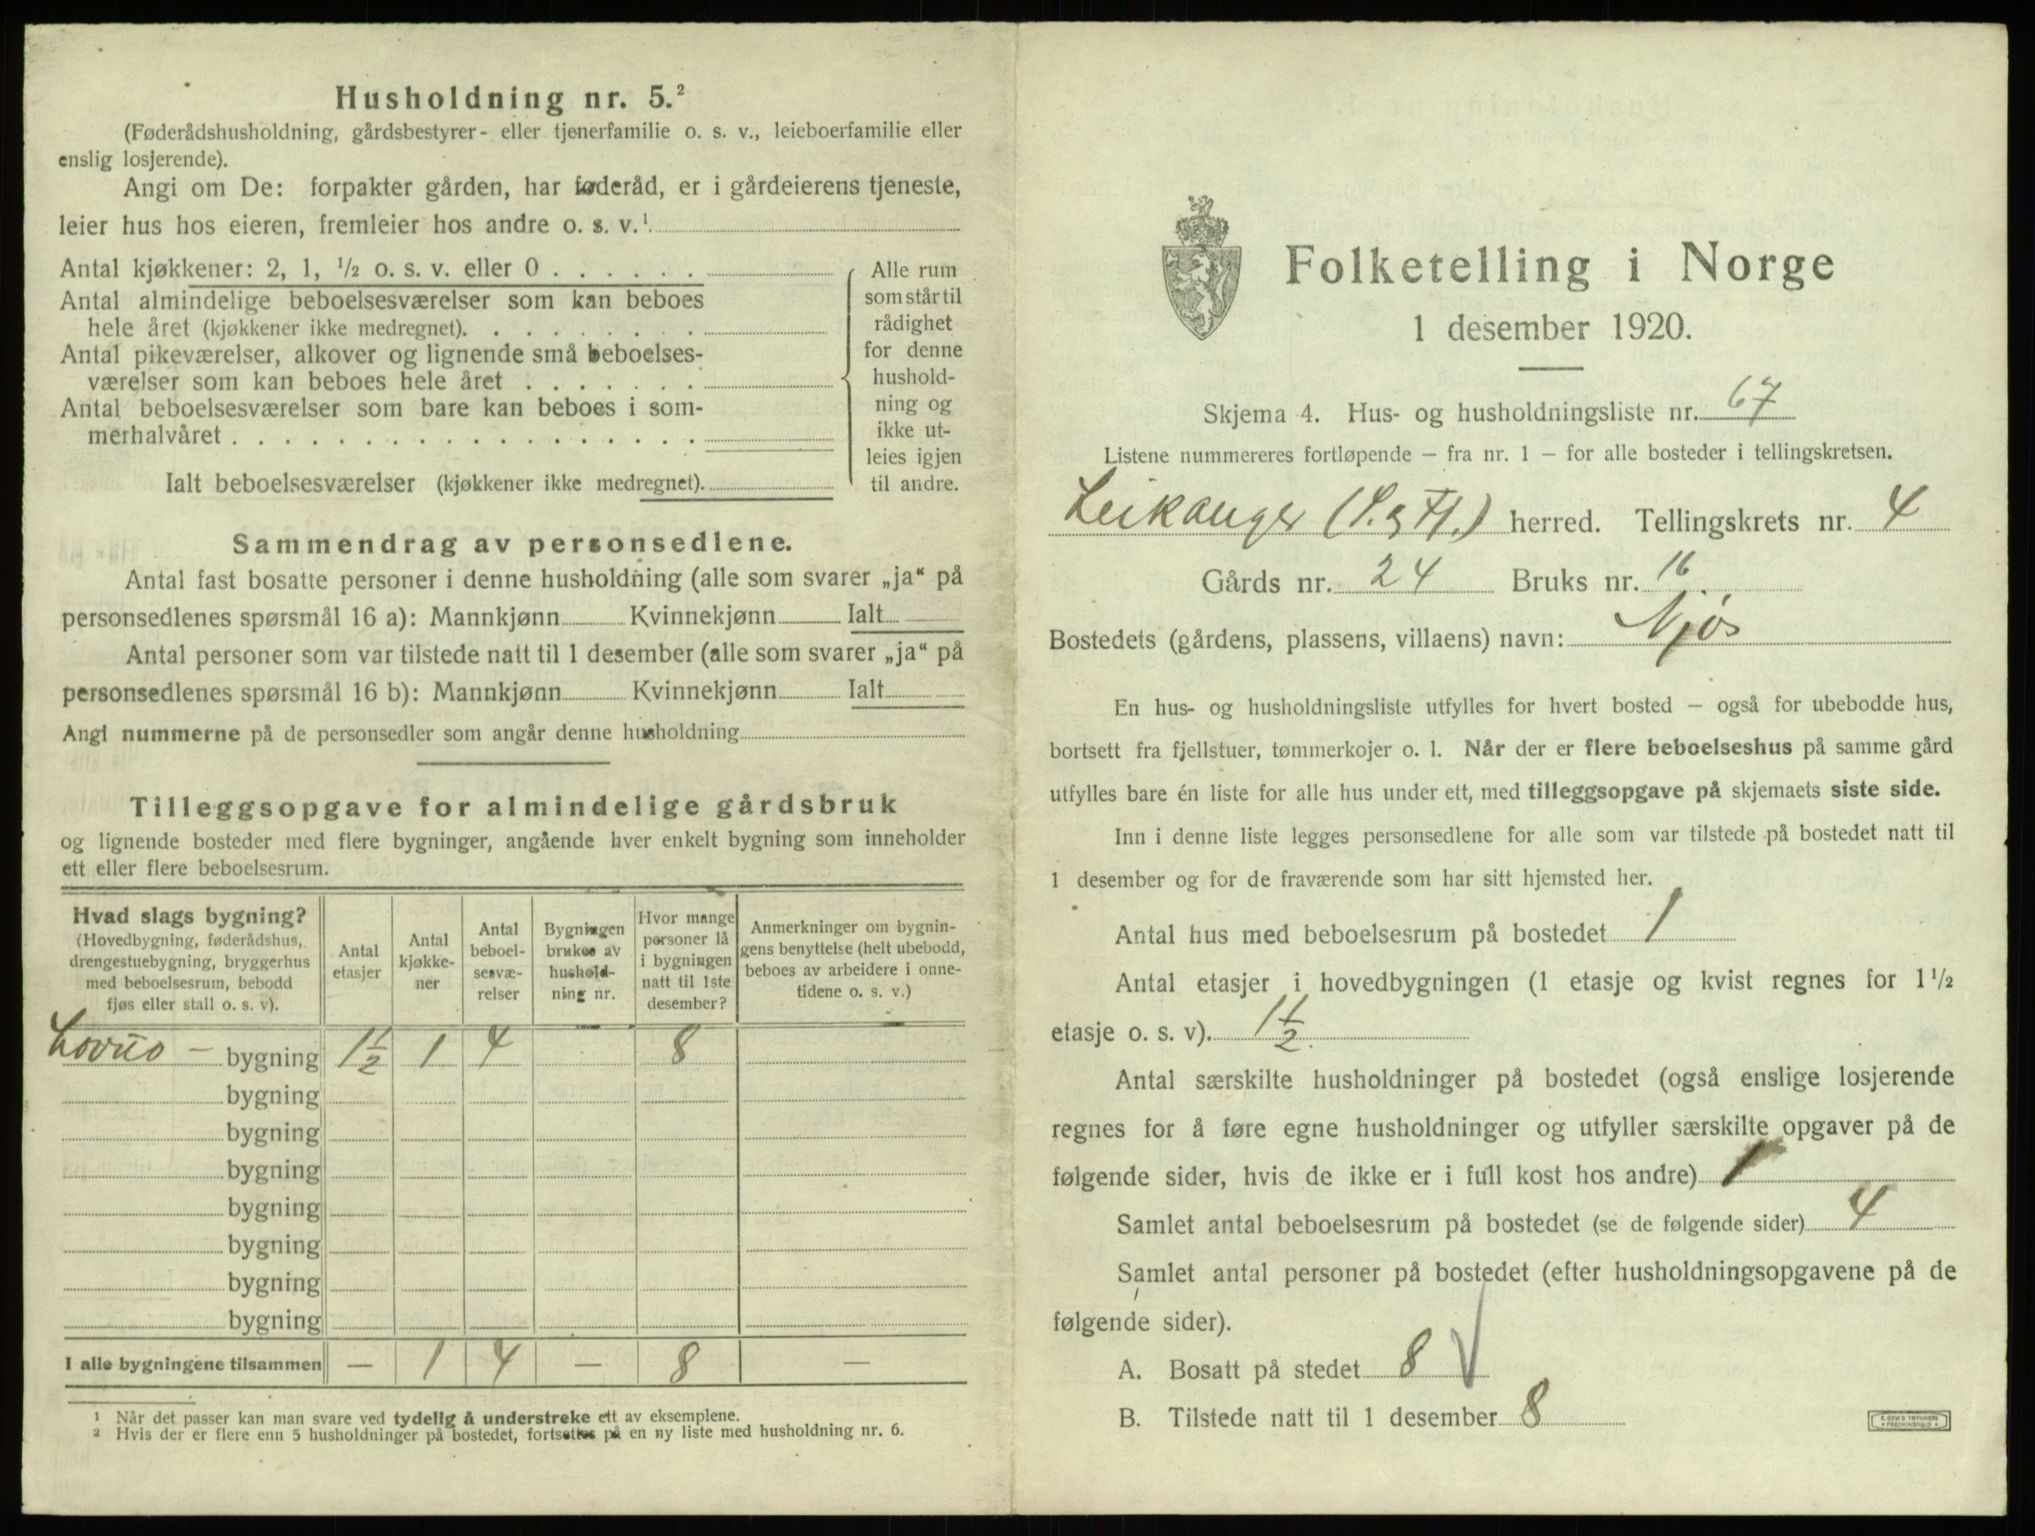 Husholdning nr. 5.²
(Føderådshusholdning, gårdsbestyrer- eller tjenerfamilie o. s. v., leieboerfamilie eller
enslig losjerende).
Angi om De: forpakter gården, har føderåd, er i gårdeierens tjeneste,
leier hus hos eieren, fremleier hos andre o. s. v.¹
Antal kjøkkener: 2, 1, ½ o. s. v. eller 0 . . . . . .
Antal almindelige beboelsesværelser som kan beboes
hele året (kjøkkener ikke medregnet). . . . . . . . .
Antal pikeværelser, alkover og lignende små beboelses-
værelser som kan beboes hele året . . . . . . .
Antal beboelsesværelser som bare kan beboes i som-
merhalvåret . . . . . . . . . . . . . . . . . .
Ialt beboelsesværelser (kjøkkener ikke medregnet).
Alle rum
som står til
rådighet
for denne
hushold-
ning og
ikke ut-
leies igjen
til andre.
Sammendrag av personsedlene.
Antal fast bosatte personer i denne husholdning (alle som svarer „ja“ på
personsedlenes spørsmål 16 a): Mannkjønn Kvinnekjønn Ialt
Antal personer som var tilstede natt til 1 desember (alle som svarer „ja“ på
personsedlenes spørsmål 16 b): Mannkjønn Kvinnekjønn Ialt
Angi nummerne på de personsedler som angår denne husholdning
Tilleggsopgave for almindelige gårdsbruk
og lignende bosteder med flere bygninger, angående hver enkelt bygning som inneholder
ett eller flere beboelsesrum.
Hvad slags bygning?
(Hovedbygning, føderådshus,
drengestuebygning, bryggerhus
med beboelsesrum, bebodd
fjøs eller stall o. s. v).
Antal
etasjer
Antal
kjøkke-
ner
Antal
beboel-
sesvæ-
relser
Bygningen
brukes av
hushold-
ning nr.
Hvor mange
personer lå
i bygningen
natt til 1ste
desember?
Anmerkninger om bygnin-
gens benyttelse (helt ubebodd,
beboes av arbeidere i onne-
tidene o. s. v.)
– bygning 1½ 1 4 8
bygning
bygning
bygning
bygning
bygning
bygning
bygning
I alle bygningene tilsammen — 1 4 — 8 —
¹ Når det passer kan man svare ved tydelig å understreke ett av eksemplene.
² Hvis der er flere enn 5 husholdninger på bostedet, fortsettes på en ny liste med husholdning nr. 6.
Folketelling i Norge
1 desember 1920.
Skjema 4. Hus- og husholdningsliste nr. 67
Listene nummereres fortløpende – fra nr. 1 – for alle bosteder i tellingskretsen.
Leikanger (S. og Fj.) herred. Tellingskrets nr. 4
Gårds nr. 24 Bruks nr. 16
Bostedets (gårdens, plassens, villaens) navn: Njøs
En hus- og husholdningsliste utfylles for hvert bosted – også for ubebodde hus,
bortsett fra fjellstuer, tømmerkojer o. l. Når der er flere beboelseshus på samme gård
utfylles bare én liste for alle hus under ett, med tilleggsopgave på skjemaets siste side.
Inn i denne liste legges personsedlene for alle som var tilstede på bostedet natt til
1 desember og for de fraværende som har sitt hjemsted her.
Antal hus med beboelsesrum på bostedet 1
Antal etasjer i hovedbygningen (1 etasje og kvist regnes for 1½
etasje o. s. v). 1½
Antal særskilte husholdninger på bostedet (også enslige losjerende
regnes for å føre egne husholdninger og utfyller særskilte opgaver på de
følgende sider, hvis de ikke er i full kost hos andre) 1
Samlet antal beboelsesrum på bostedet (se de følgende sider) 4
Samlet antal personer på bostedet (efter husholdningsopgavene på de
følgende sider).
A. Bosatt på stedet 8 √
B. Tilstede natt til 1 desember 8